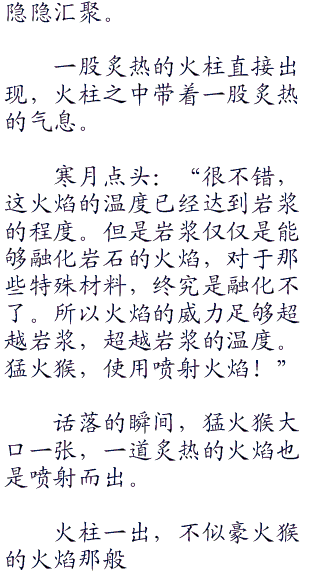 隐隐汇聚。
一股炙热的火柱直接出
现，火柱之中带着一股炙热
的气息。
寒月点头：“很不错，
这火焰的温度已经达到岩浆
的程度。但是岩浆仅仅是能
够融化岩石的火焰，对于那
些特殊材料，终究是融化不
了。所以火焰的威力足够超
越岩浆，超越岩浆的温度。
猛火猴，使用喷射火焰！”
话落的瞬间，猛火猴大
口一张，一道炙热的火焰也
是喷射而出。
火柱一出，不似豪火猴
的火焰那般